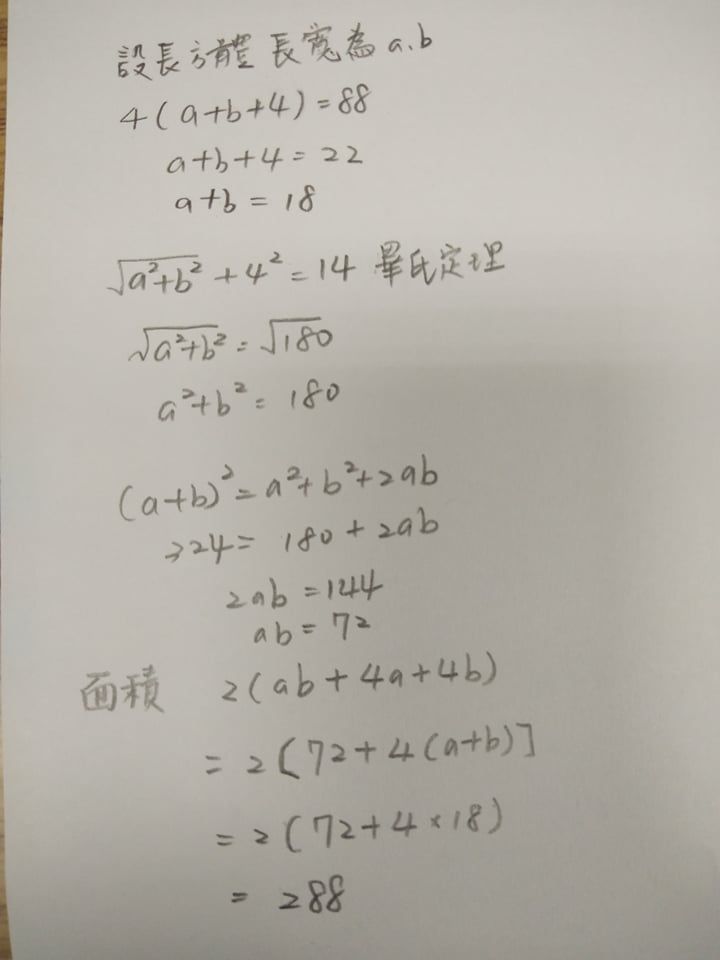 設長方體 長寬為 a.b
4(a+b+4)=88
a+b+4=22
a+b=18
√a²+b² +4²=14 畢氏定理
√a²+b²=√180
a²+b²=180
(a+b)²=a²+b²+2ab
324=180+2ab
2ab=144
ab=72
面積 2(ab+4a+4b)
=2[72+4(a+b)]
=2(72+4×18)
=288